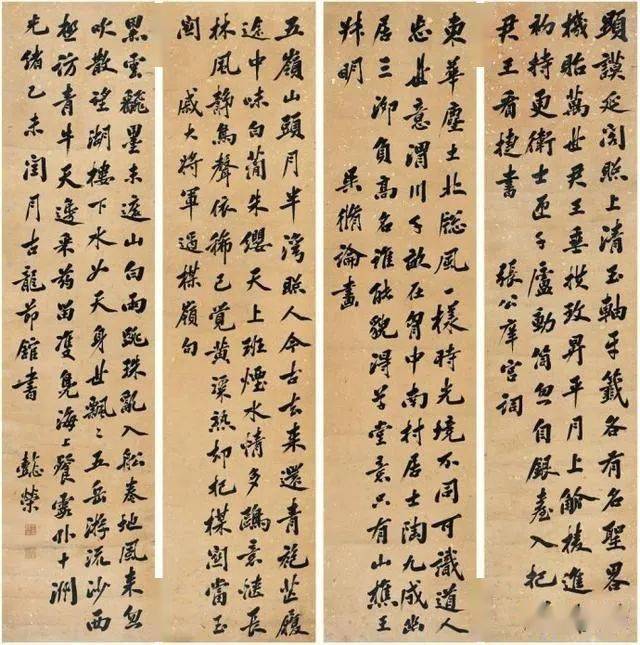 顯謨延閣照上清玉軸牙籤各有名聖畧
機貽萬世君王垂拱致昇平月上觚稜進
初特更衛士匝千廬動簡忽自銀臺入把
君王看捷書 張公庠宮詞
東華塵土北窓風一樣時光境不同可識道人
忘世意渭川千畝在胷中南村居士陶九成幽
居三泖負高名誰能貌得草堂意只有山樵王
叔明 論畫
五嶺山頭月半灣照人今古去來還青袍芒履
途中味白簡朱纓天上班煙水情多鷗意遠長
林風靜鳥聲依稀已覺黃溪熟却把楳關當玉
關 戚大將軍過楳嶺句
黑雲飜墨未遮山白雨跳珠亂入船卷地風來忽
吹散望湖樓下水如天身世飄〻五岳游流沙西
極訪青牛天邊采葯留雙鳧海上餐霞外十洲
光緒乙未閏月古龍節館書 懿榮